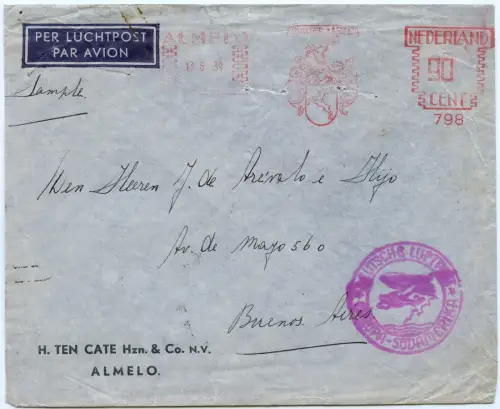 PER LUCHTPOST
PAR AVION
ALMELO
NEDERLAND
90
CENT
798
Sample
Den Heeren J. de Arévalo e Hijo
Av. de Mayo 560
Buenos Aires
DEUTSCHE LUFTPOST
EUROPA-SÜDAMERIKA
H. TEN CATE Hzn. & Co. N.V.
ALMELO.